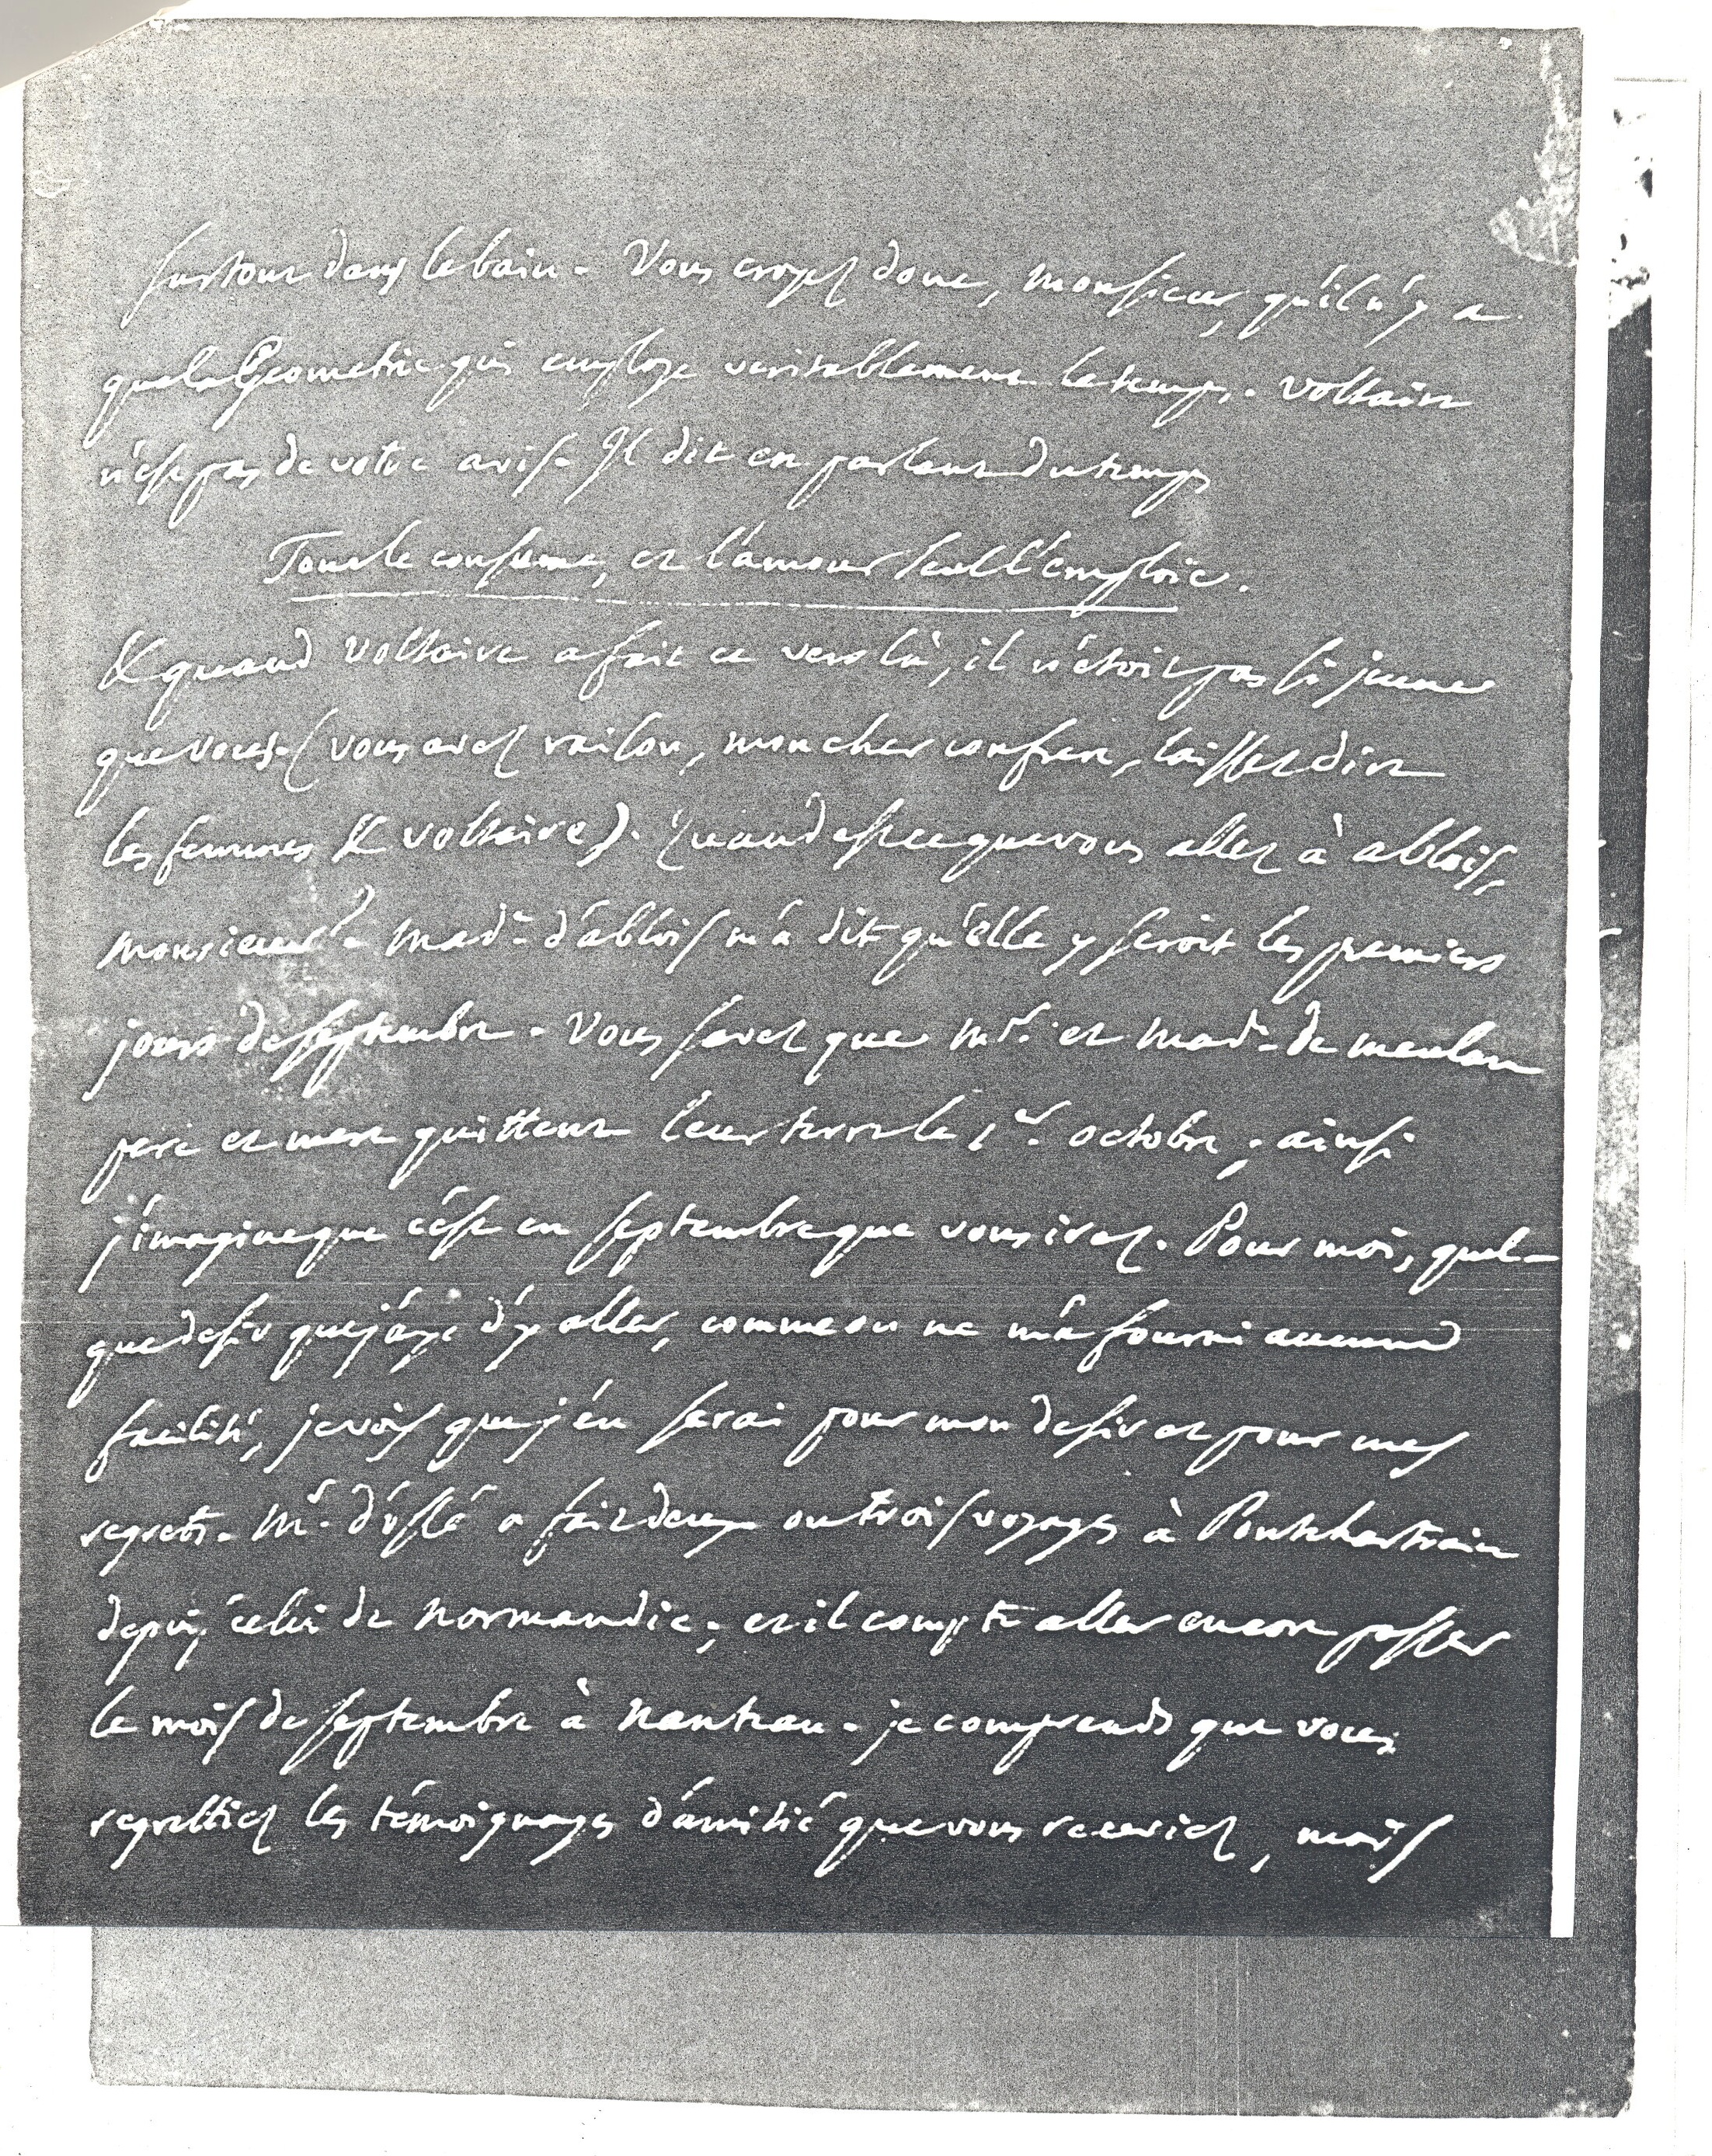 surtout dans le bain. Vous croyez donc, monsieur, qu'il n'y a
que la Geometrie qui employe veritablement le temps. Voltaire
n'est pas de votre avis. Il dit en parlant du temps
Tout le consume, et l'amour seul l'emploie.
& quand Voltaire a fait ce vers là, il n'étoit pas si jeune
que vous. (vous avez raison, mon cher confrere, laissez dire
les femmes & voltaire). Quand est ce que vous allez à ablois,
monsieur? Made. d'ablois m'a dit qu'elle y seroit les premiers
jours de septembre. Vous savez que Mr. et Made. de meulan
pere et mere quittent leur terre le 1er. octobre; ainsi
j'imagine que c'est en septembre que vous irez. Pour moi, quel-
que desir que j'aye d'y aller, comme on ne m'a fourni aucune
facilité, je vois que j'en serai pour mon desir et pour mes
regrets. Mr. d'ussé a fait deux ou trois voyages à Pontchartrain
depuis celui de Normandie; et il compte aller encore passer
le mois de septembre à Nanteau. je comprends que vous
regrettiez les témoignages d'amitié que vous receviez, mais